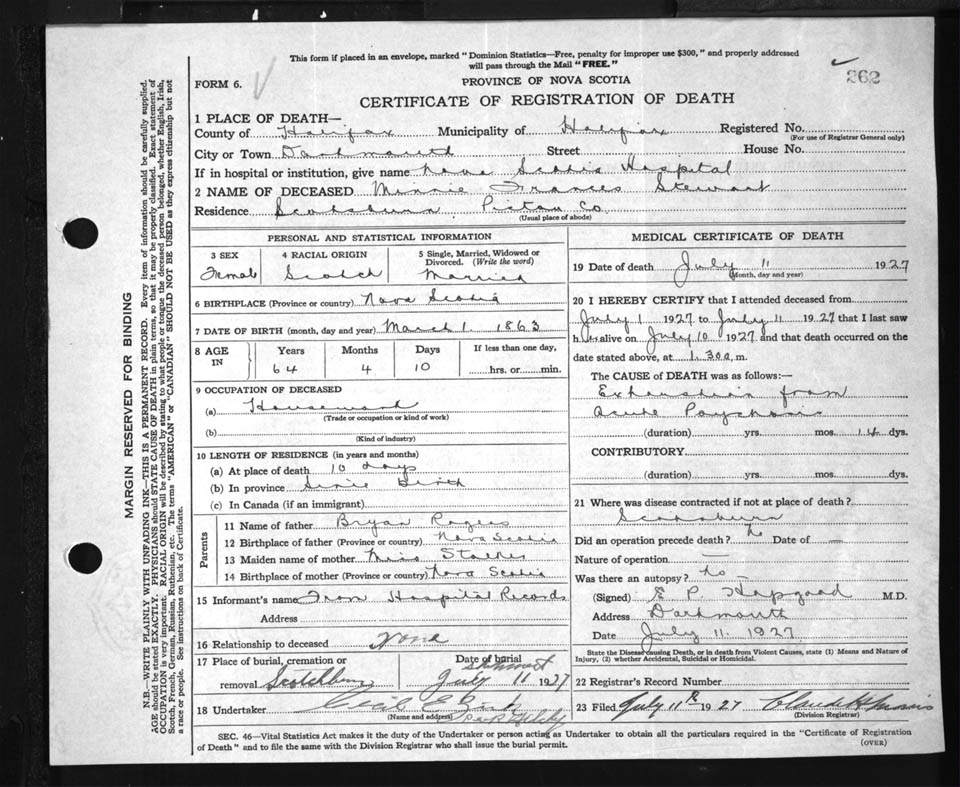 This form if placed in an envelope, marked "Dominion Statistics—Free, penalty for improper use $300," and properly addressed
will pass through the Mail "FREE."
262
FORM 6.
PROVINCE OF NOVA SCOTIA
CERTIFICATE OF REGISTRATION OF DEATH
1 PLACE OF DEATH—
County of Halifax Municipality of Halifax Registered No.
(For use of Registrar General only)
City or Town Dartmouth Street House No.
If in hospital or institution, give name Nova Scotia Hospital
2 NAME OF DECEASED Minnie Frances Stewart
Residence Scotsburn Pictou Co
(Usual place of abode)
PERSONAL AND STATISTICAL INFORMATION
3 SEX 4 RACIAL ORIGIN 5 Single, Married, Widowed or
Divorced. (Write the word)
Female Scotch Married
6 BIRTHPLACE (Province or country) Nova Scotia
7 DATE OF BIRTH (month, day and year) March 1 1863
8 AGE IN Years Months Days If less than one day,
64 4 10 hrs. or min.
9 OCCUPATION OF DECEASED
(a) Housework
(Trade or occupation or kind of work)
(b)
(Kind of industry)
10 LENGTH OF RESIDENCE (in years and months)
(a) At place of death 10 days
(b) In province Since Birth
(c) In Canada (if an immigrant)
Parents
11 Name of father Bryan Rogers
12 Birthplace of father (Province or country) Nova Scotia
13 Maiden name of mother Miss
14 Birthplace of mother (Province or country) Nova Scotia
15 Informant's name From Hospital Records
Address
16 Relationship to deceased None
17 Place of burial, cremation or Date of burial
removal Scotchburn July 11 1927
18 Undertaker Cecil E
(Name and address)
MEDICAL CERTIFICATE OF DEATH
19 Date of death July 11 1927
(Month, day and year)
20 I HEREBY CERTIFY that I attended deceased from
July 1 1927 to July 11 1927 that I last saw
her alive on July 10 1927 and that death occurred on the
date stated above, at 1.30 a. m.
The CAUSE of DEATH was as follows:—
Exhaustion from
Acute Psychosis
(duration) yrs. mos. 14 dys.
CONTRIBUTORY
(duration) yrs. mos. dys.
21 Where was disease contracted if not at place of death?
Scotsburn
Did an operation precede death? No Date of —
Nature of operation —
Was there an autopsy? No —
(Signed) E. P. Hapgood M.D.
Address Dartmouth
Date July 11. 1927
State the Disease causing Death, or in death from Violent Causes, state (1) Means and Nature of
Injury, (2) whether Accidental, Suicidal or Homicidal.
22 Registrar's Record Number
23 Filed July 11th 1927
(Division Registrar)
SEC. 46—Vital Statistics Act makes it the duty of the Undertaker or person acting as Undertaker to obtain all the particulars required in the "Certificate of Registration
of Death" and to file the same with the Division Registrar who shall issue the burial permit.
(OVER)
MARGIN RESERVED FOR BINDING
N.B.—WRITE PLAINLY WITH UNFADING INK—THIS IS A PERMANENT RECORD. Every item of information should be carefully supplied.
AGE should be stated EXACTLY. PHYSICIANS should STATE CAUSE OF DEATH in plain terms, so that it may be properly classified. Exact statement of
OCCUPATION is very important. RACIAL ORIGIN will be described by stating to what people or tongue the deceased person belonged, whether English, Irish,
Scotch, French, German, Russian, Ruthenian, etc. The terms "AMERICAN" or "CANADIAN" SHOULD NOT BE USED as they express citizenship but not
a race or people. See instructions on back of Certificate.